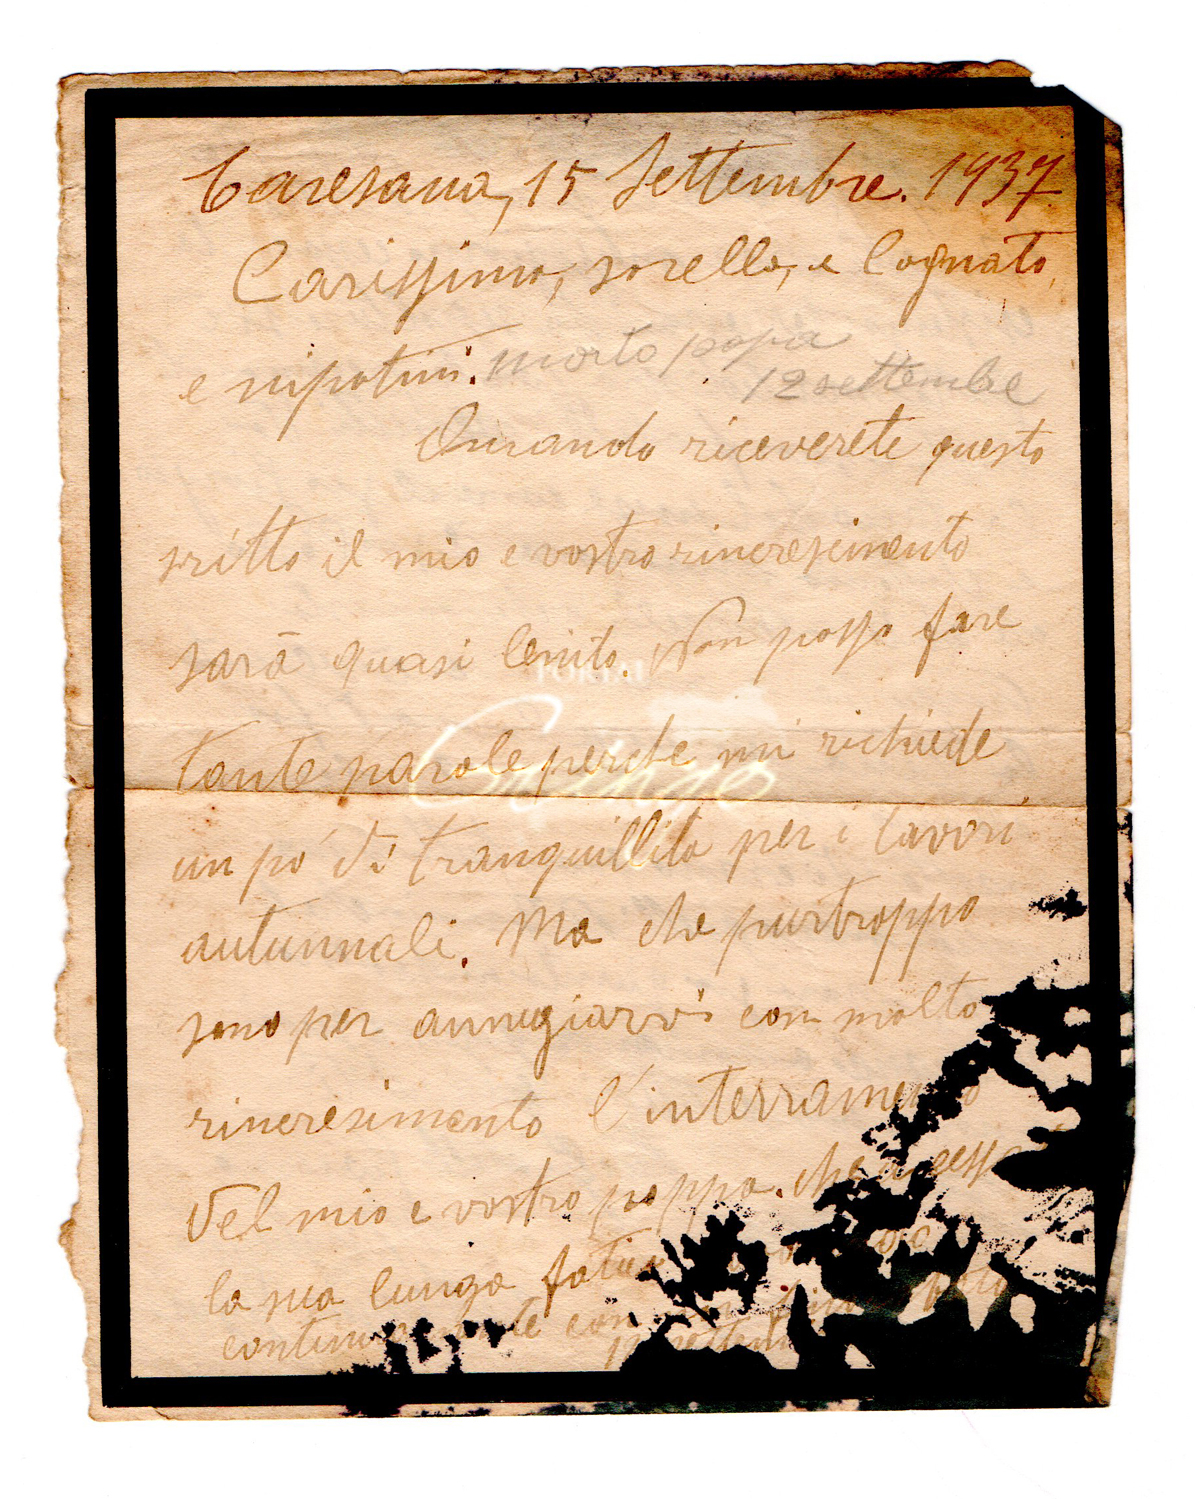 Caresana, 15 Settembre. 1937
Carissimo, sorella, e Cognato,
e nipotini. morto papa
12 settembre
Quando riceverete questo
sritto il mio e vostro rincrescimento
sarà quasi lenito. Non posso fare
tante parole perche mi richiede
un po' di tranquillita per i lavori
autunnali. Ma che purtroppo
sono per annugiarvi con molto
rincresimento l'interramento
del mio e vostro pappa. che
la sua lunga
con
PORTAL